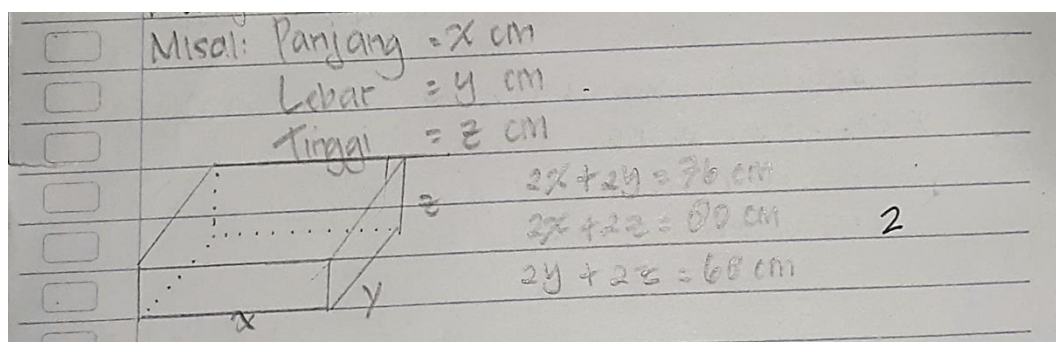 Misal: Panjang = x cm
Lebar = y cm
Tinggi = z cm
2x + 2y = 76 cm
2x + 2z = 80 cm
2
2y + 2z = 60 cm
z
y
x